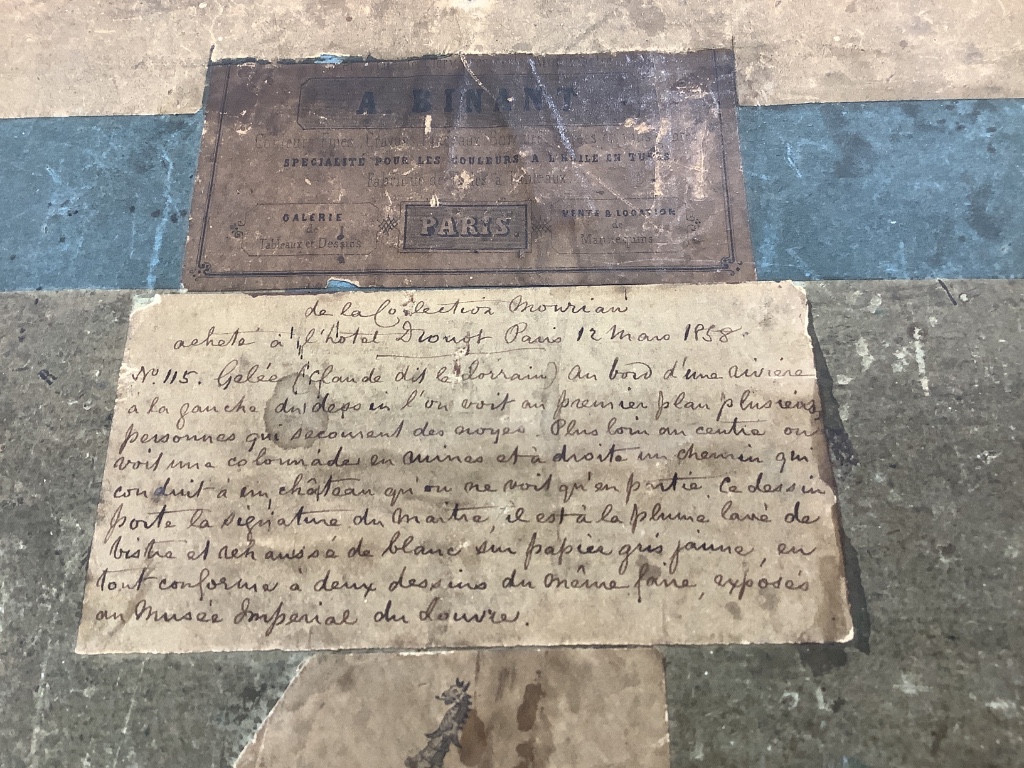 A BINANT
SPECIALITE POUR LES COULEURS A L'HUILE EN TUBES
Tableaux
GALERIE
de
Tableaux et Dessins
PARIS.
VENTE & LOCATION
de
Mannequins
de la Collection Mourian
acheté à l'hotel Drouot Paris 12 Mars 1858.
No 115. Gelée (Claude dit le Lorrain) Au bord d'une rivière
à la gauche du dessin l'on voit au premier plan plusieurs
personnes qui secourent des noyés. Plus loin au centre on
voit une colonnade en ruines et à droite un chemin qui
conduit à un château qu'on ne voit qu'en partie. Ce dessin
porte la signature du maitre, il est à la plume lavé de
bistre et rehaussé de blanc sur papier gris jaune, en
tout conforme à deux dessins du même faire, exposés
au Musée Imperial du Louvre.